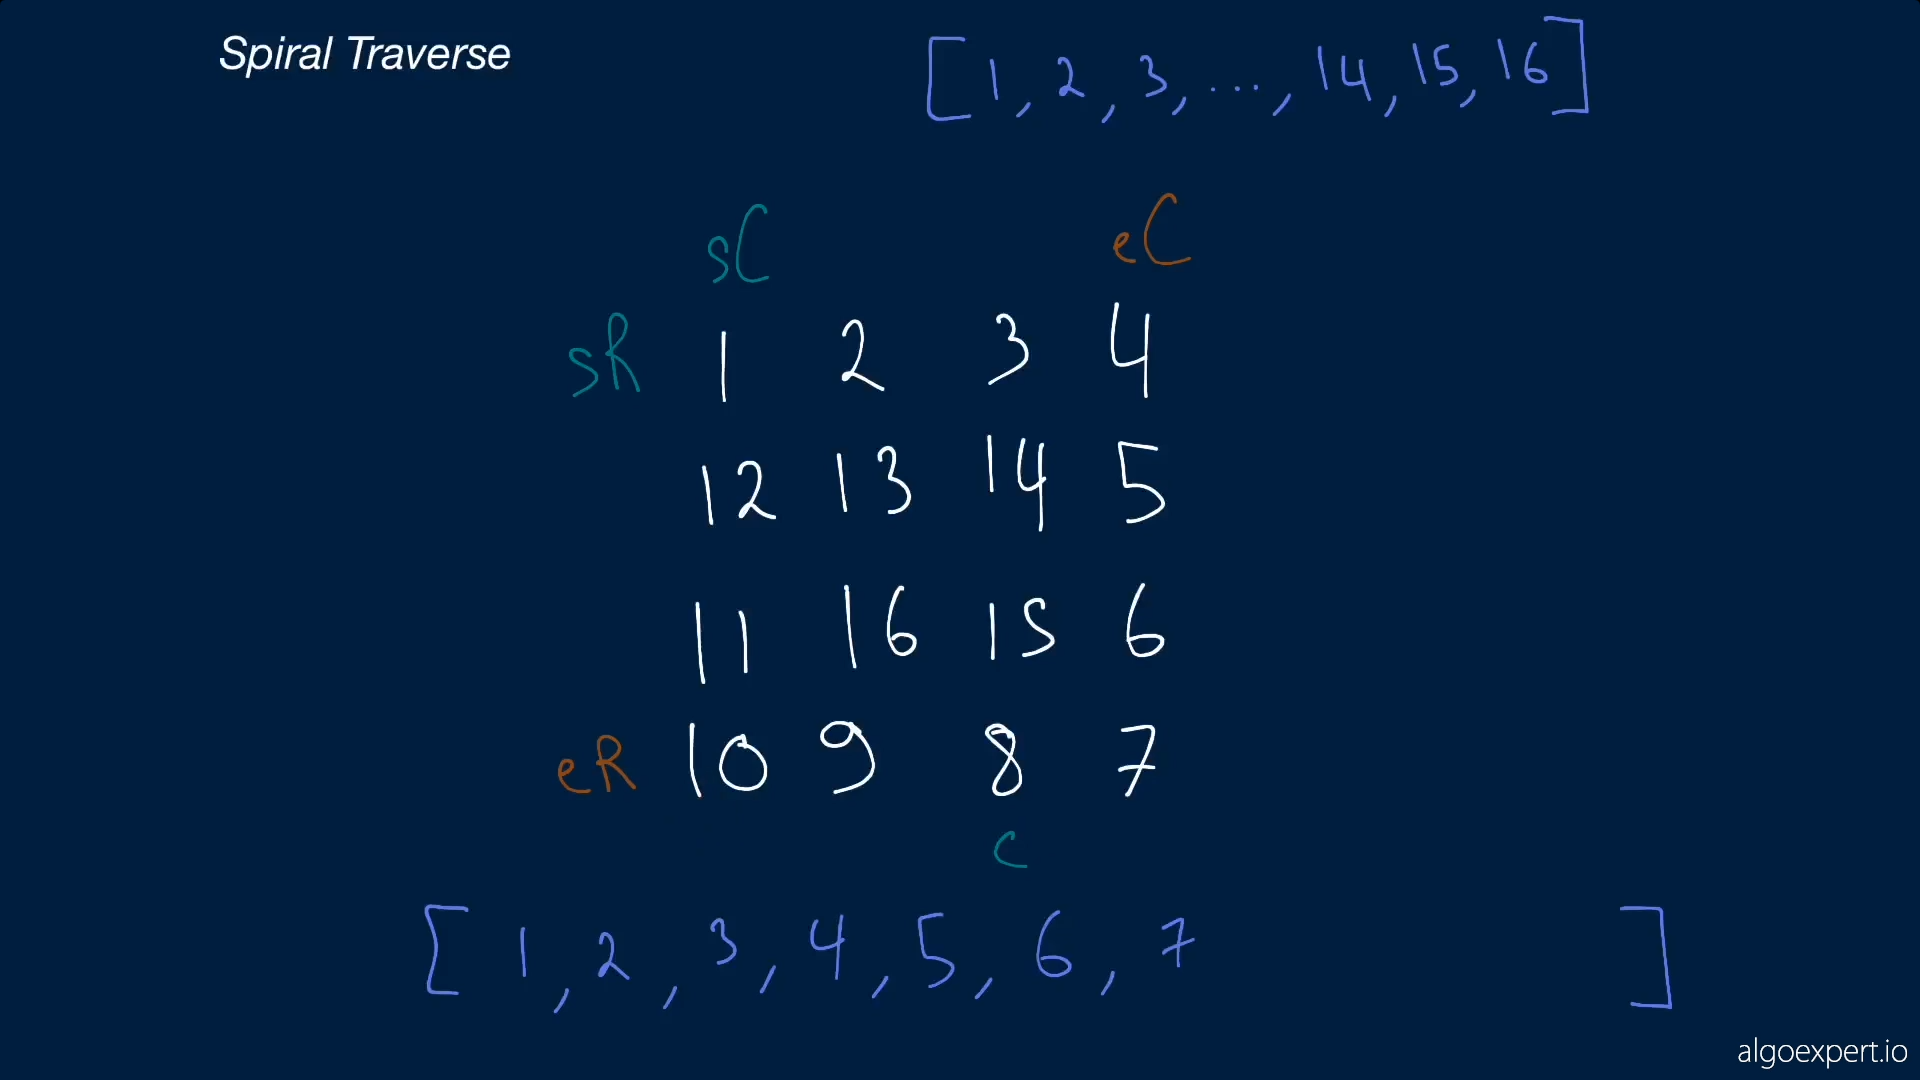 Spiral Traverse
[1, 2, 3, ..., 14, 15, 16]
sC eC
sR 1 2 3 4
12 13 14 5
11 16 15 6
eR 10 9 8 7
c
[1, 2, 3, 4, 5, 6, 7 ]
algoexpert.io